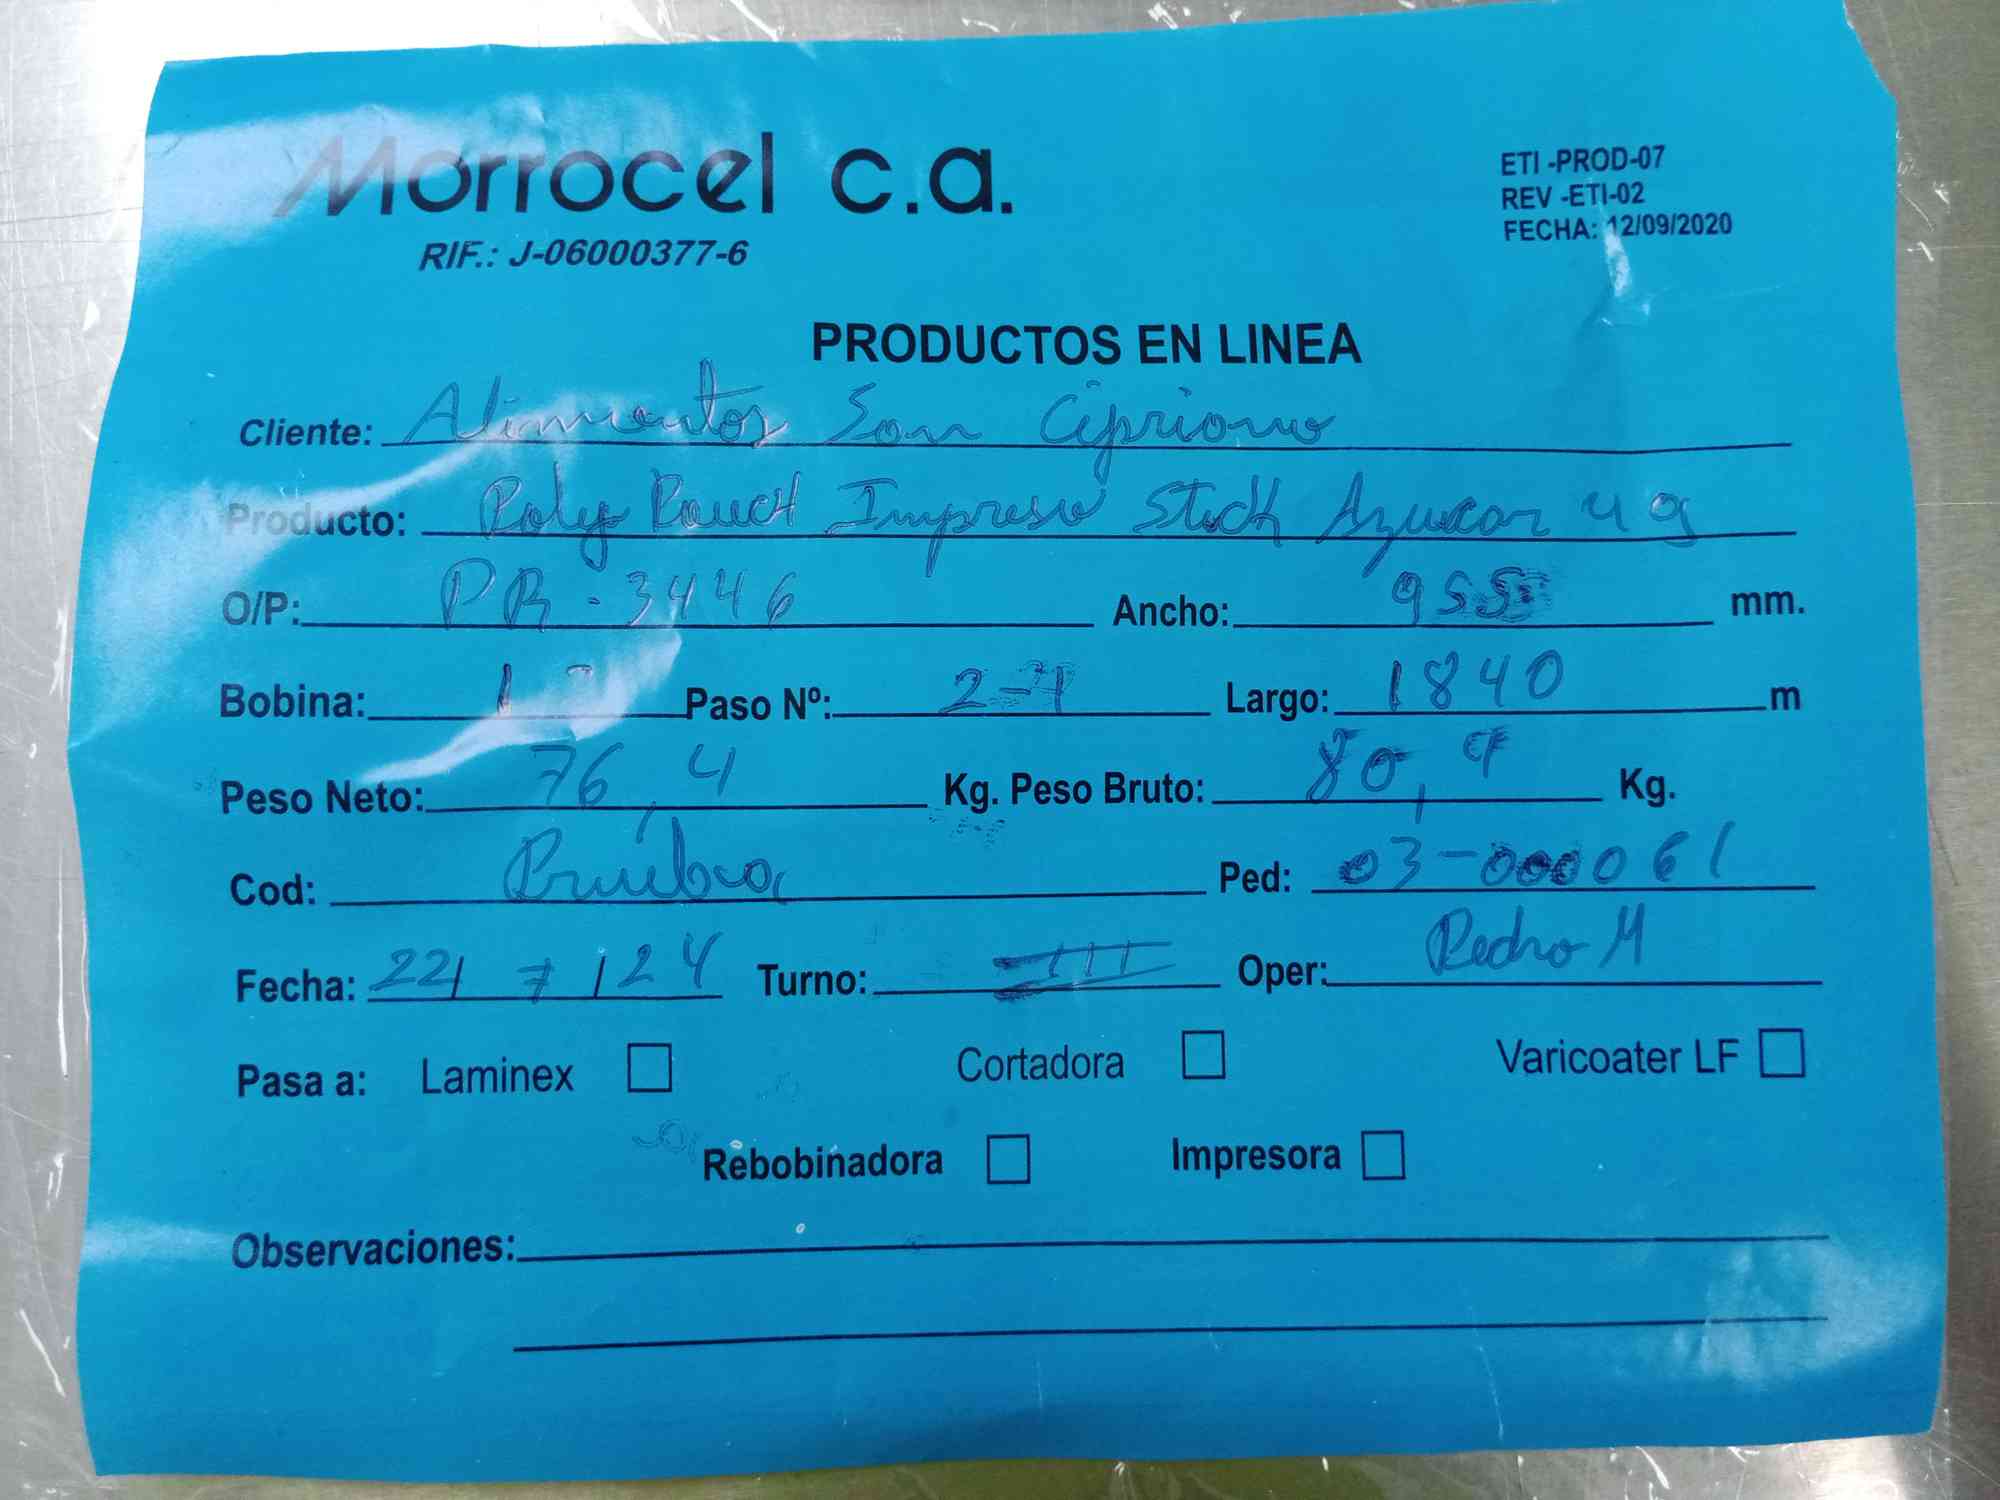 Morrocel c.a.
RIF.: J-06000377-6
ETI -PROD-07
REV -ETI-02
FECHA: 12/09/2020
PRODUCTOS EN LINEA
Cliente: Alimentos San Cipriano
Producto: Poly Pouch Impreso Stick Azucar 4 g
O/P: PR-3446 Ancho: 955 mm.
Bobina: 1 Paso Nº: 2-1 Largo: 1840 m
Peso Neto: 76,4 Kg. Peso Bruto: 80,9 Kg.
Cod: Prueba Ped: 03-0000061
Fecha: 22/7/24 Turno: III Oper: Pedro M
Pasa a: Laminex Cortadora Varicoater LF
Rebobinadora Impresora
Observaciones: